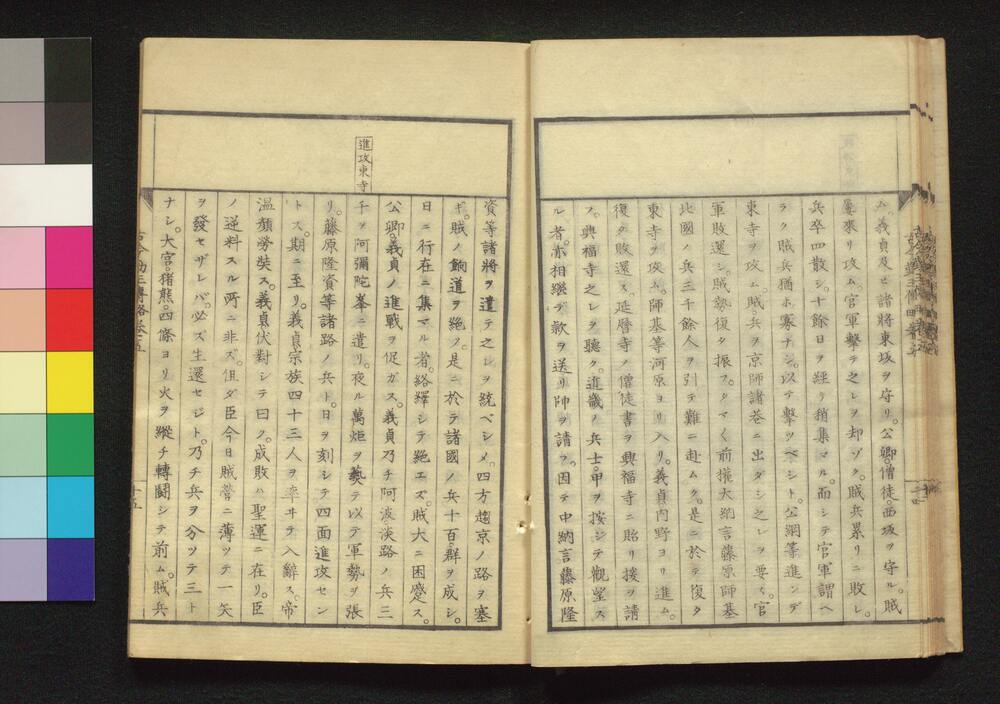 ム。義貞及ヒ諸將東坂ヲ守リ。公卿。僧徒。西坂ヲ守ル。賊
屢來リ攻ム。官軍擊テ之レヲ却ゾク。賊兵累リニ敗レ。
兵卒四散シ。十餘日ヲ經リ稍集マル。而シテ官軍謂ヘ
ラク賊兵猶ホ寡ナシ。以テ擊ツベシト。公綱等進ンデ
東寺ヲ攻ム。賊兵ヲ京師諸巷ニ出タシ之レヲ要ス。官
軍敗還シ。賊勢復タ振フ。タマく前權大納言藤原師基
北國ノ兵三千餘人ヲ引テ難ニ赴ムク。是ニ於テ復タ
東寺ヲ攻ム。師基等河原ヨリ入リ。義貞內野ヨリ進ム。
復タ敗還ス。延曆寺ノ僧徒書ヲ興福寺ニ貽リ援ヲ請
フ。興福寺之レヲ聽ク。近畿ノ兵士。甲ヲ按ジテ觀望ス
ル者。亦相繼デ款ヲ送リ師ヲ請フ。因テ中納言藤原隆
進攻東寺
資等諸將ヲ遣テ之レヲ統ベシメ。四方趨京ノ路ヲ塞
ギ。賊ノ餉道ヲ絕ツ。是ニ於テ諸國ノ兵十百。群ヲ成シ。
日ニ行在ニ集マル者。絡繹シテ絕エズ。賊大ニ困蹙ス。
公卿。義貞ノ進戰ヲ促ガス。義貞乃チ阿波淡路ノ兵三
千ヲ阿彌陀峯ニ遣リ。夜ル萬炬ヲ爇テ以テ軍勢ヲ張
リ。藤原隆資等諸路ノ兵ト。日ヲ刻シテ四面進攻セン
トス。期ニ至リ。義貞宗族四十三人ヲ率ヰテ入辭ス。帝
溫顏勞奘ス。義貞伏對シテ曰ク。成敗ハ聖運ニ在リ。臣
ノ逆料スル所ニ非ズ。但ダ臣今日賊營ニ薄ツテ一矢
ヲ發セザレバ。必ズ生還セジト。乃チ兵ヲ分ツテ三ト
ナシ。大宮。猪熊。四條ヨリ火ヲ縱チ轉鬪シテ前ム。賊兵
十五